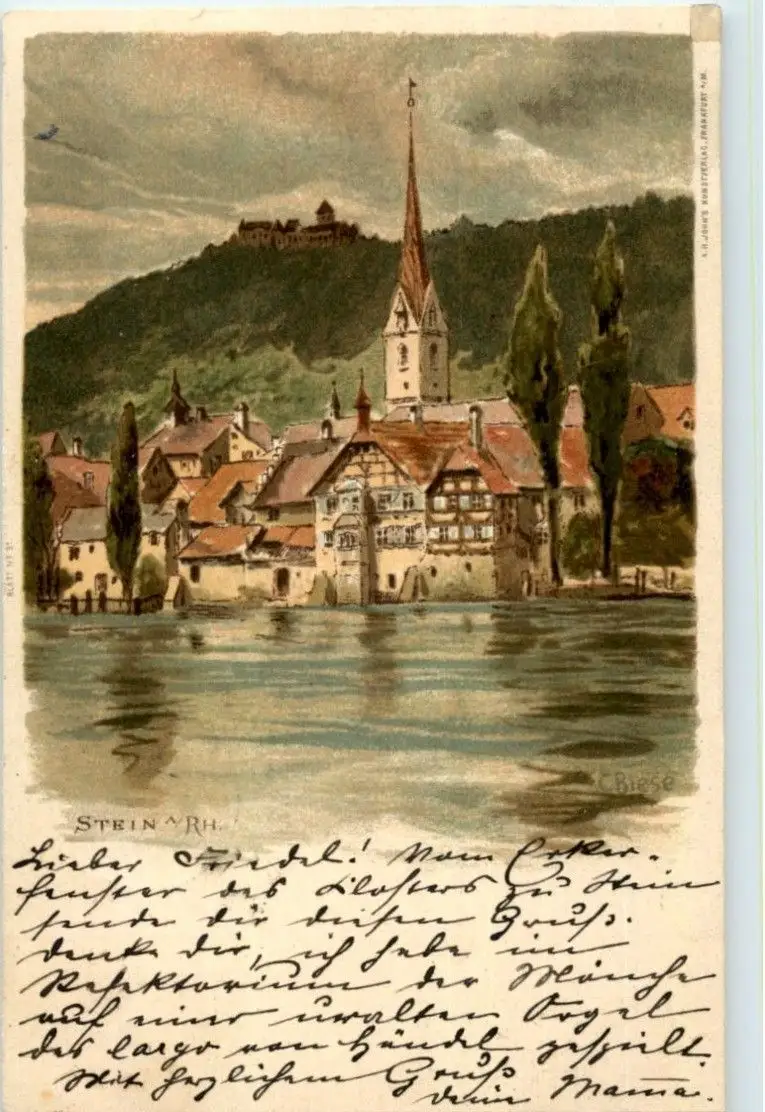 K.H. JOHN'S KUNSTVERLAG, FRANKFURT A/M.
BLATT Nº
C. Biese
STEIN A/RH.
Lieber Friedel! Vom Erker-
fenster des Klosters zu Stein
sende dir diesen Gruß.
denke dir, ich habe im
Refektorium der Mönche
auf einer uralten Orgel
das Largo von Händel gespielt.
Mit herzlichem Gruß
deine Mama.